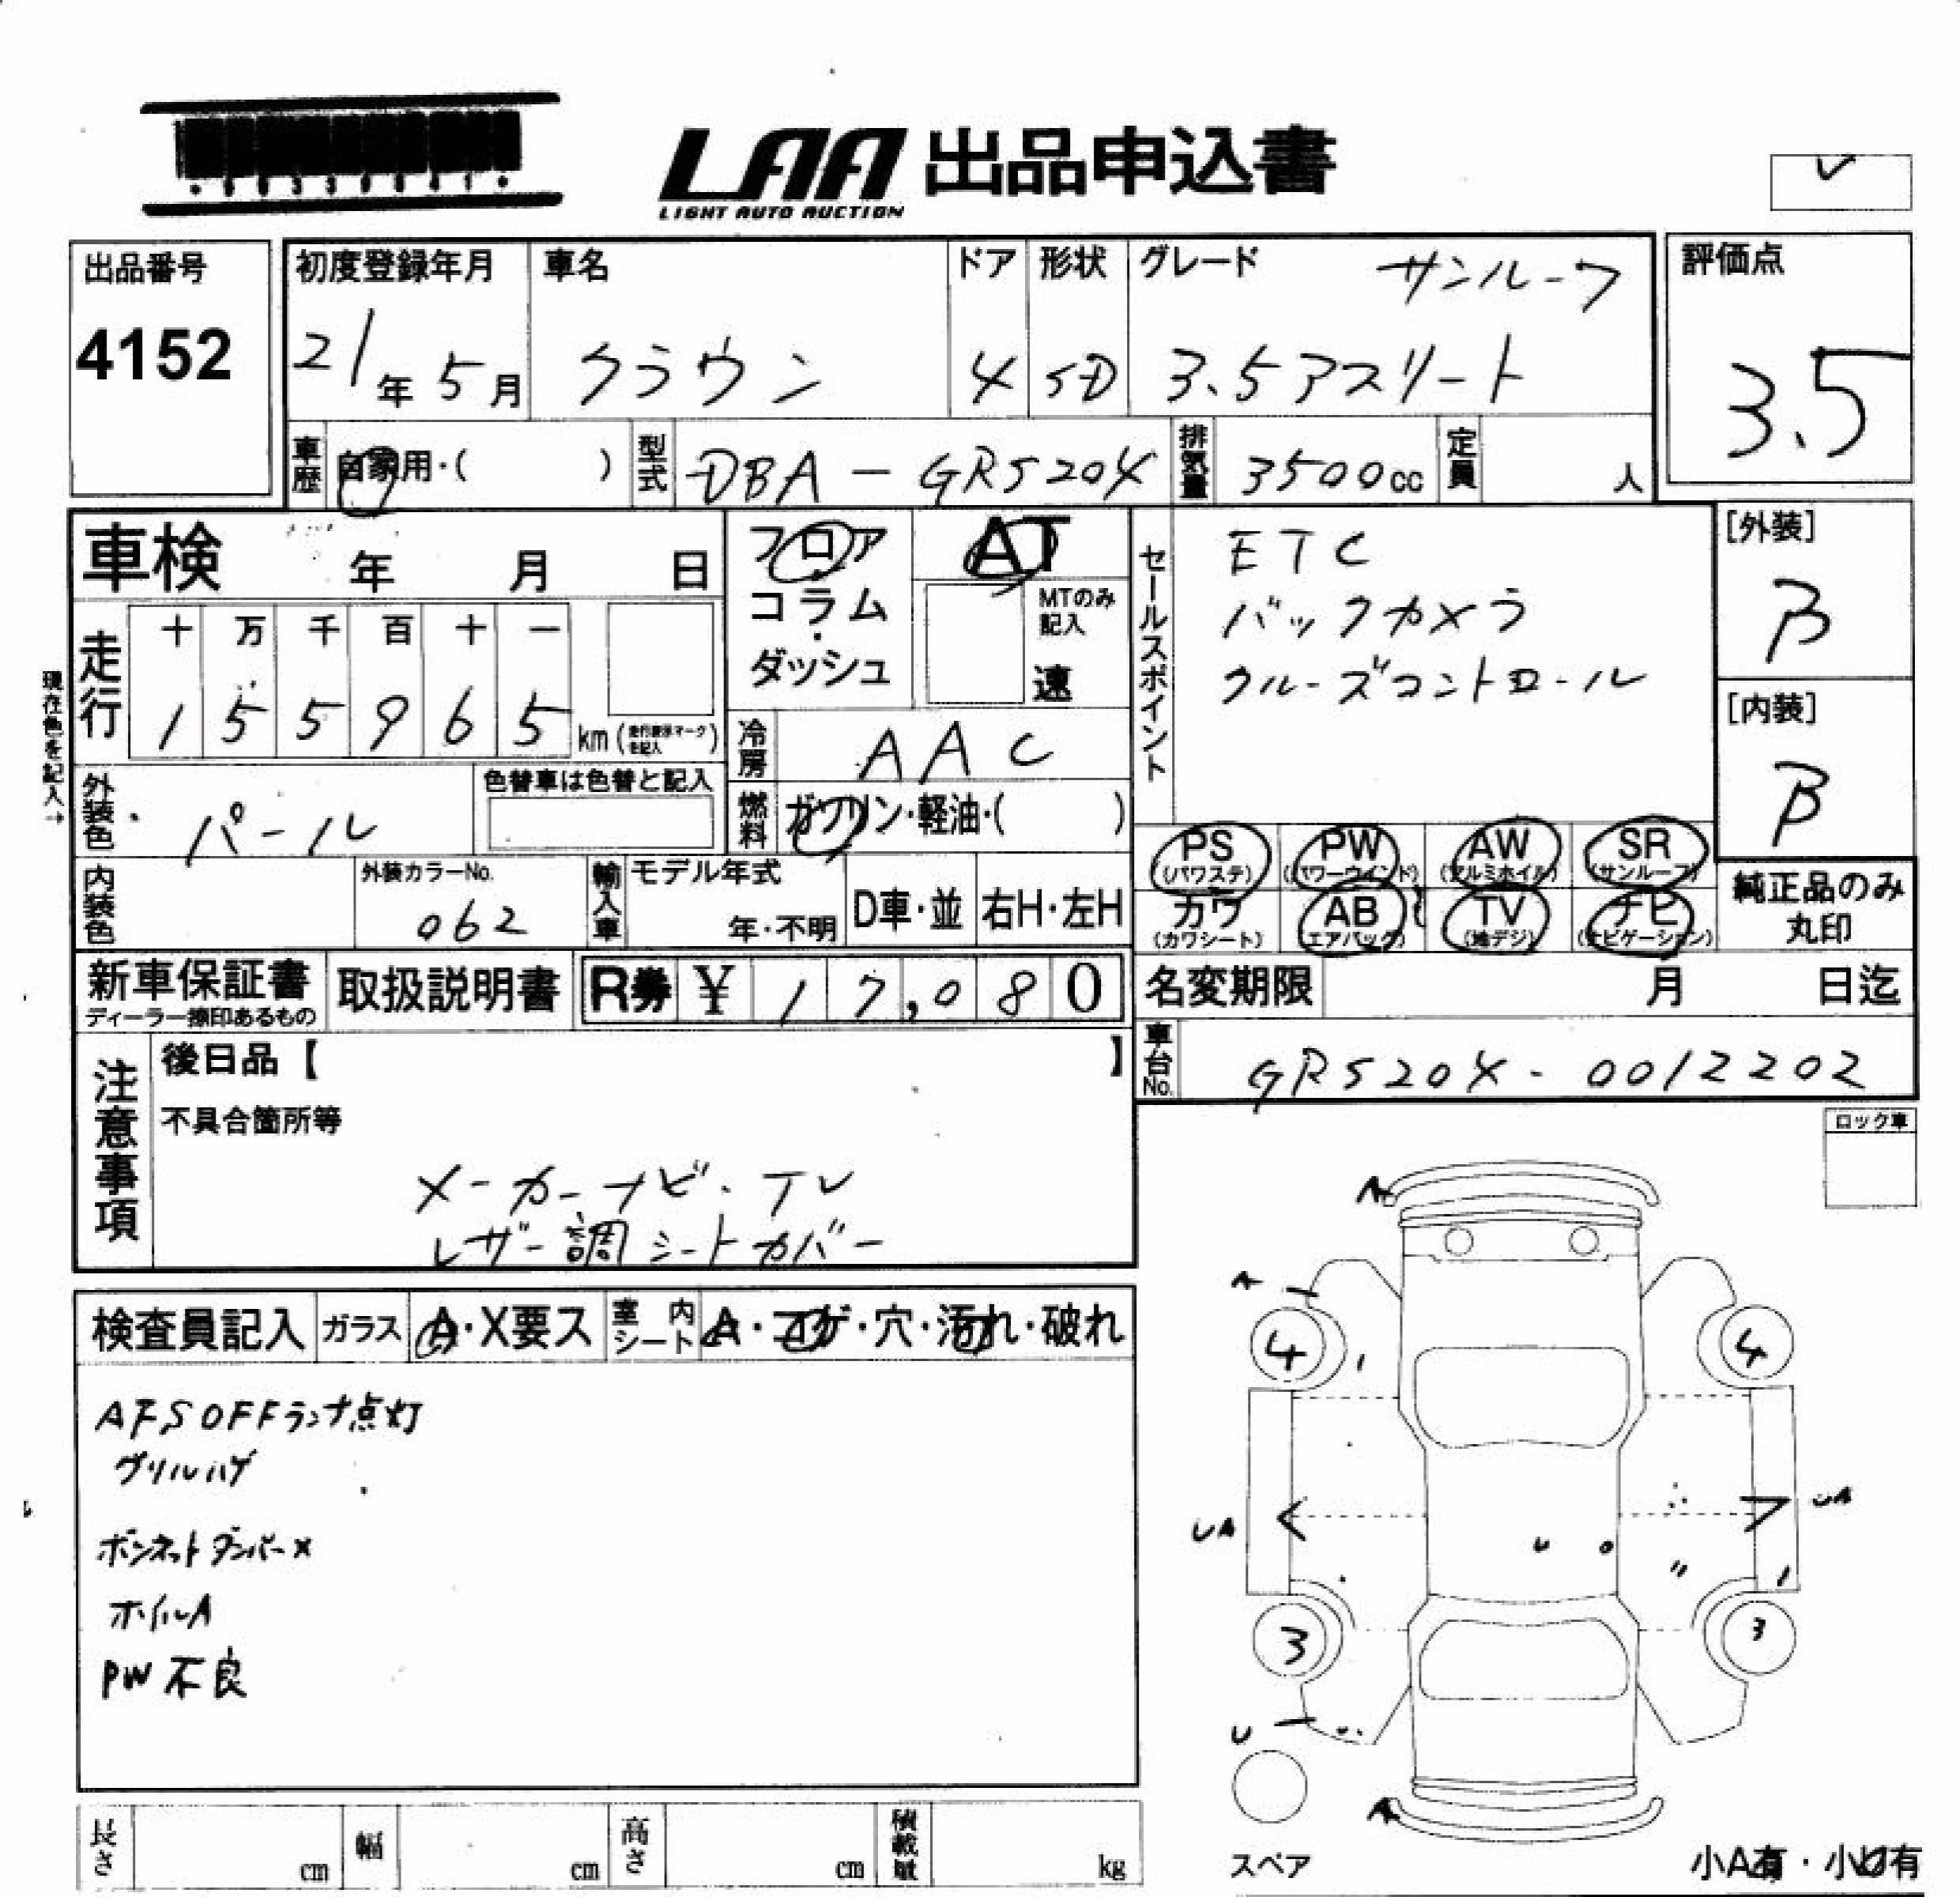 LAA 出品申込書
LIGHT AUTO AUCTION
出品番号
4152
初度登録年月
21年5月
車名
クラウン
ドア
4
形状
SD
グレード サンルーフ
3.5アスリート
評価点
3.5
車歴 自家用・( )
型式 DBA-GRS204
排気量 3500cc
定員 人
車検 年 月 日
フロア
コラム
・
ダッシュ
AT
MTのみ
記入
速
セールスポイント
ETC
バックカメラ
クルーズコントロール
[外装]
B
[内装]
B
現在色を記入→
走行
十 万 千 百 十 一
1 5 5 9 6 5 km
冷房 AAC
外装色 パール
色替車は色替と記入
燃料 ガソリン・軽油・( )
PS AW PW SR
(パワステ) (パワーウインド) (アルミホイル) (サンルーフ)
カワ AB TV ナビ
(カワシート) (エアバッグ) (地デジ) (ナビゲーション)
純正品のみ
丸印
内装色
外装カラーNo.
062
輸入車
モデル年式
年・不明
D車・並
右H・左H
新車保証書
取扱説明書
R券 ¥ 17,080
名変期限 月 日迄
車台No. GRS204-0012202
注意事項
後日品【 】
不具合箇所等
メーカーナビ・TV
レザー調シートカバー
ロック車
検査員記入 ガラス A・X要ス 室内シート A・コゲ・穴・汚れ・破れ
AFS OFFランプ点灯
グリルハゲ
ボンネットダンパー×
ホイルA
PW不良
A
A
4
4
UA
UA
U
3
3
U
A
スペア
小A有・小U有
長さ cm 幅 cm 高さ cm 積載量 kg